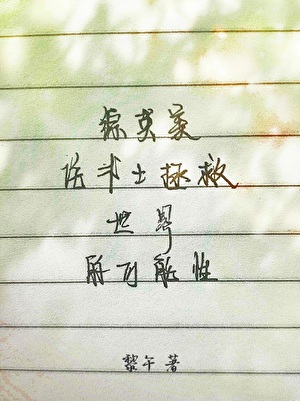 综英美
论术士拯救
世界
的可能性
黎午 著